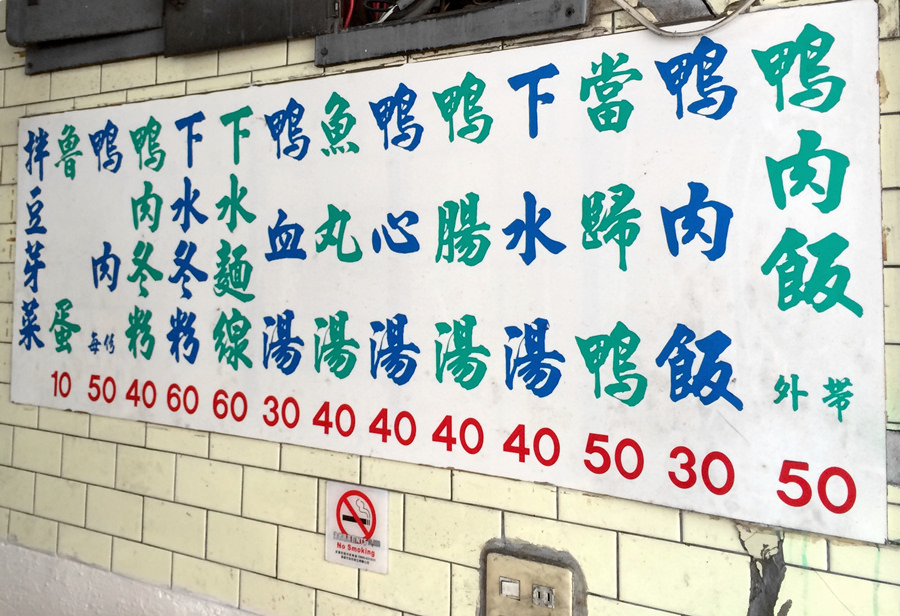 鴨肉飯
外帶
50
鴨肉飯
30
當歸鴨
50
下水湯
40
鴨腸湯
40
鴨心湯
40
魚丸湯
40
鴨血湯
30
下水麵線
60
下水冬粉
60
鴨肉冬粉
40
鴨肉
每份
50
魯蛋
10
拌豆芽菜
No Smoking